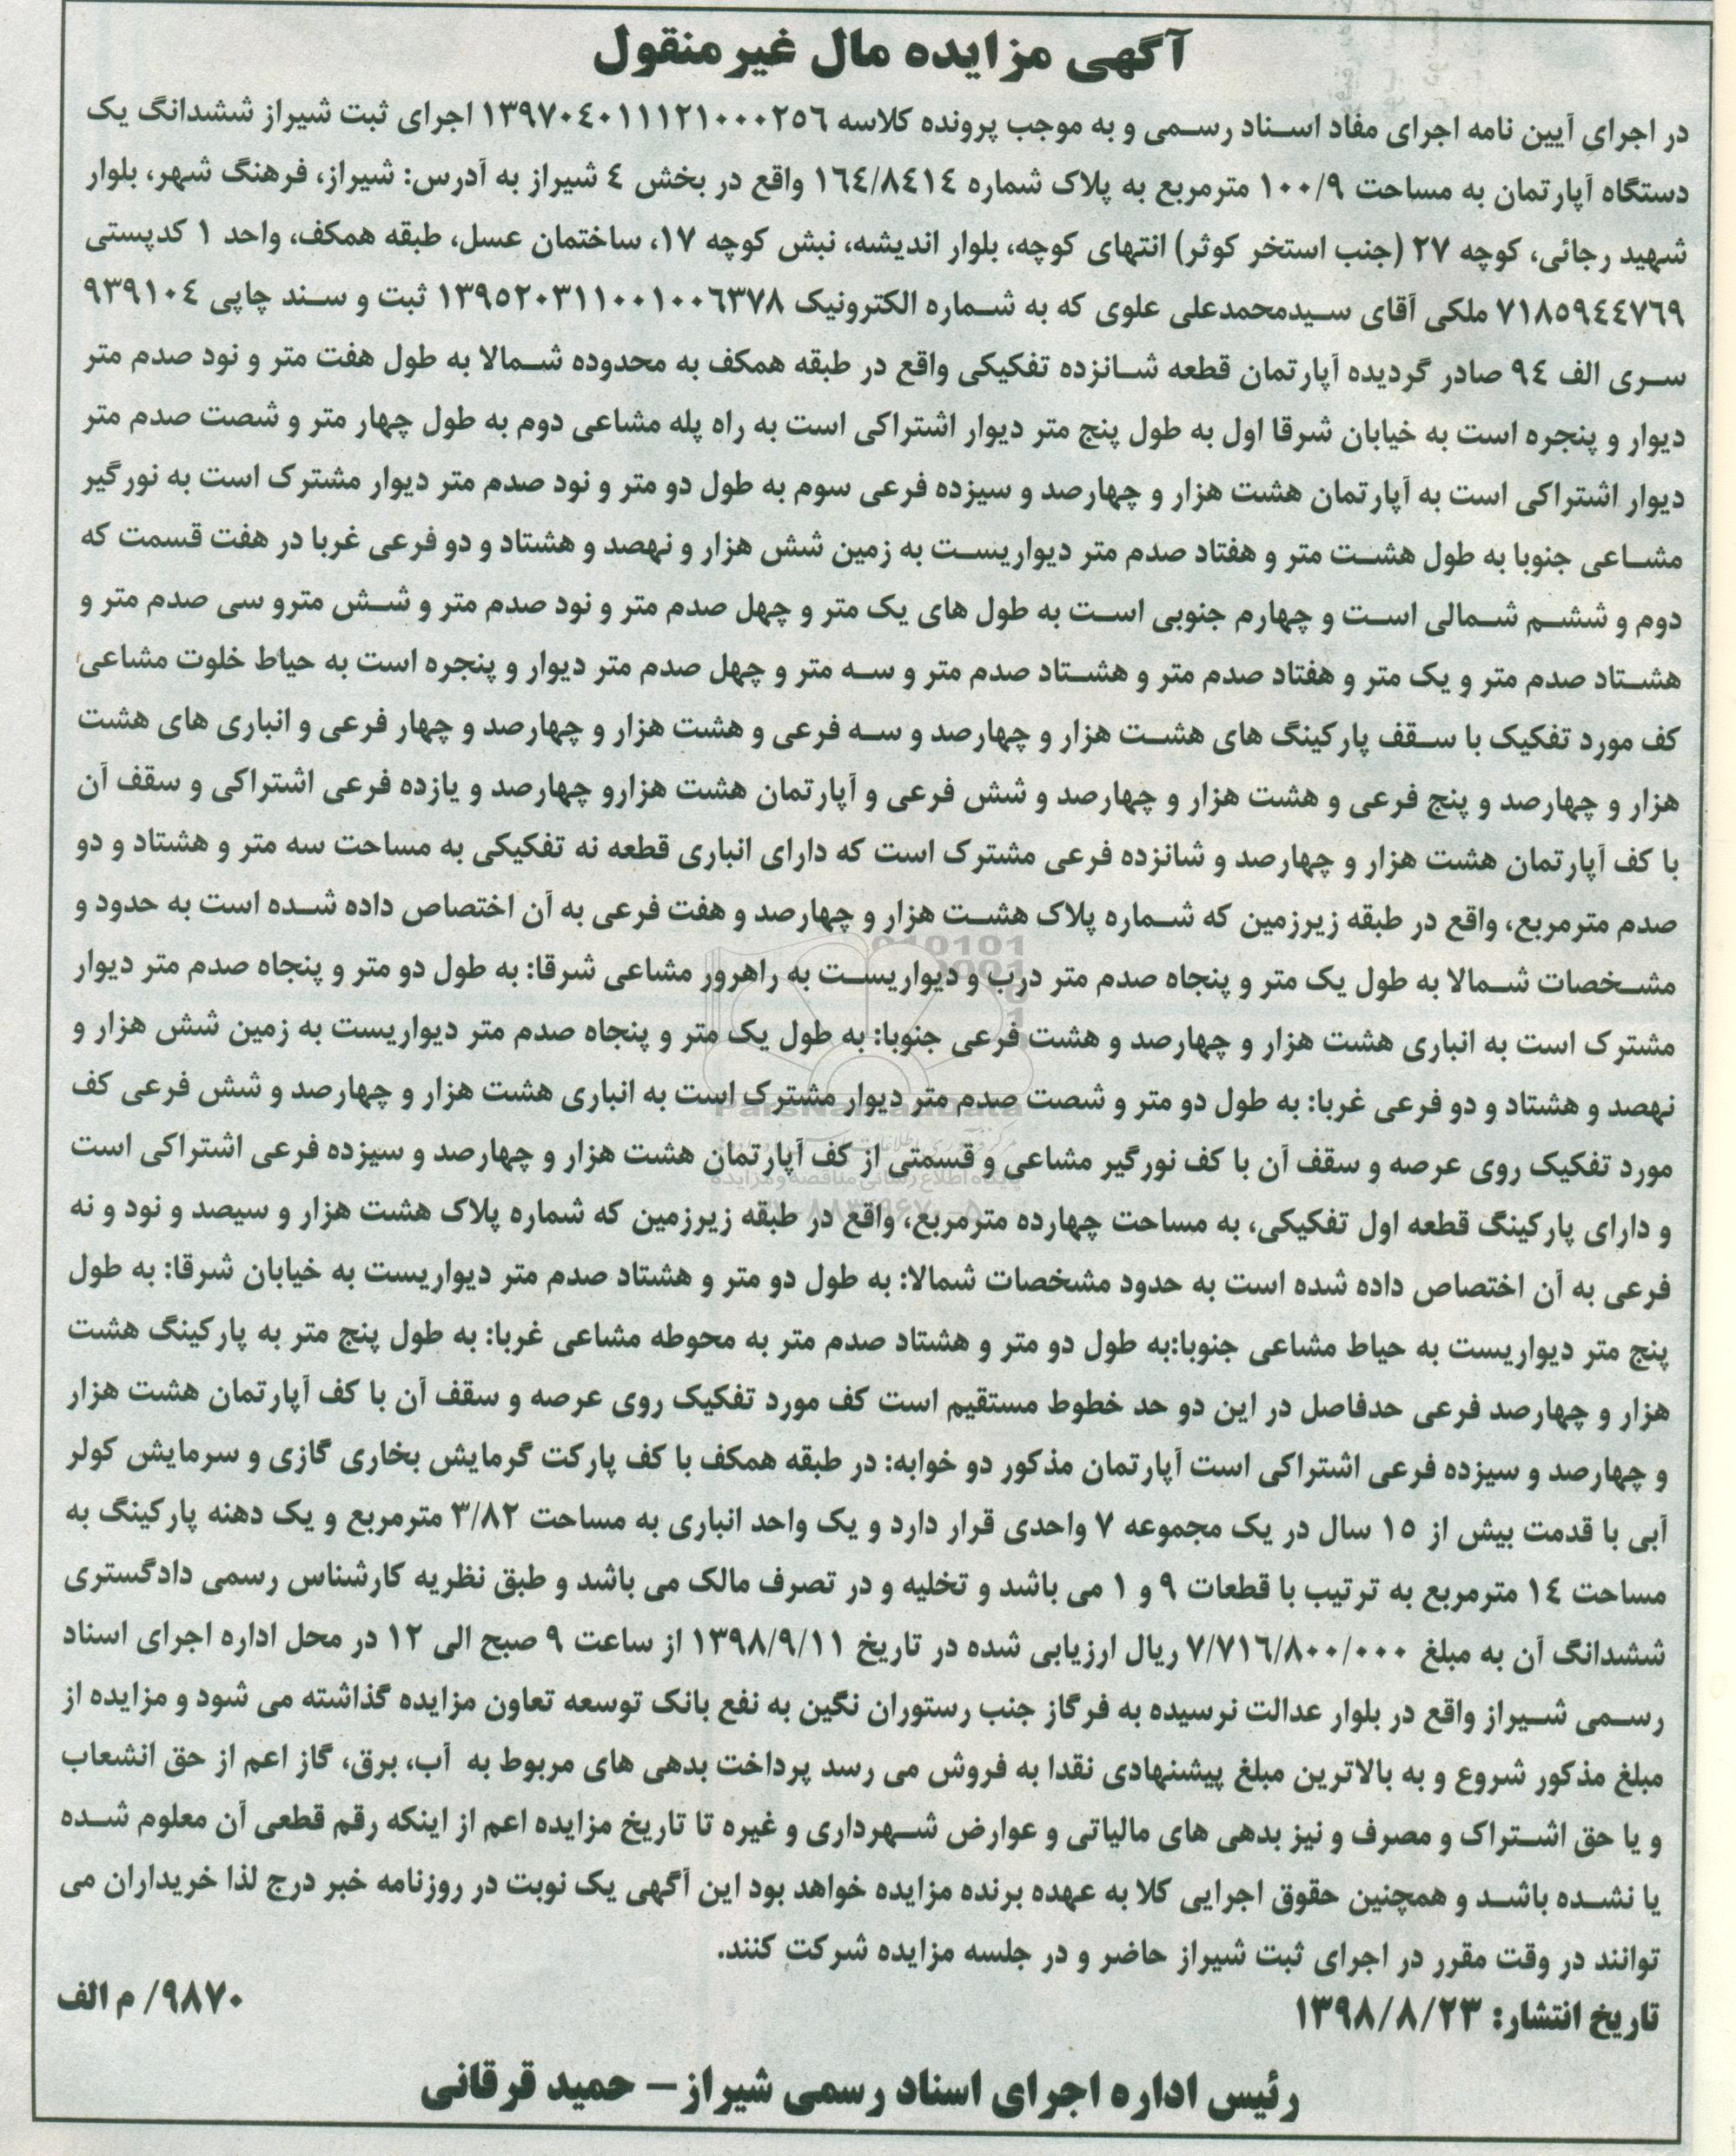 آگهی مزایده مال غیرمنقول
در اجرای آیین نامه اجرای مفاد اسناد رسمی و به موجب پرونده کلاسه ۱۳۹۷۰٤۰۱۱۱۲۱۰۰۰۲۵٦ اجرای ثبت شیراز ششدانگ یک
دستگاه آپارتمان به مساحت ۱۰۰/۹ مترمربع به پلاک شماره ۱٦٤/۸٤۱٤ واقع در بخش ٤ شیراز به آدرس: شیراز، فرهنگ شهر، بلوار
شهید رجائی، کوچه ۲۷ (جنب استخر کوثر) انتهای کوچه، بلوار اندیشه، نبش کوچه ۱۷، ساختمان عسل، طبقه همکف، واحد ۱ کدپستی
۷۱۸۵۹٤٤۷٦۹ ملکی آقای سیدمحمدعلی علوی که به شماره الکترونیک ۱۳۹۵۲۰۳۱۱۰۰۱۰۰٦۳۷۸ ثبت و سند چاپی ۹۳۹۱۰٤
سری الف ۹٤ صادر گردیده آپارتمان قطعه شانزده تفکیکی واقع در طبقه همکف به محدوده شمالا به طول هفت متر و نود صدم متر
دیوار و پنجره است به خیابان شرقا اول به طول پنج متر دیوار اشتراکی است به راه پله مشاعی دوم به طول چهار متر و شصت صدم متر
دیوار اشتراکی است به آپارتمان هشت هزار و چهارصد و سیزده فرعی سوم به طول دو متر و نود صدم متر دیوار مشترک است به نورگیر
مشاعی جنوبا به طول هشت متر و هفتاد صدم متر دیواریست به زمین شش هزار و نهصد و هشتاد و دو فرعی غربا در هفت قسمت که
دوم و ششم شمالی است و چهارم جنوبی است به طول های یک متر و چهل صدم متر و نود صدم متر و شش مترو سی صدم متر و
هشتاد صدم متر و یک متر و هفتاد صدم متر و هشتاد صدم متر و سه متر و چهل صدم متر دیوار و پنجره است به حیاط خلوت مشاعی
کف مورد تفکیک با سقف پارکینگ های هشت هزار و چهارصد و سه فرعی و هشت هزار و چهارصد و چهار فرعی و انباری های هشت
هزار و چهارصد و پنج فرعی و هشت هزار و چهارصد و شش فرعی و آپارتمان هشت هزارو چهارصد و یازده فرعی اشتراکی و سقف آن
با کف آپارتمان هشت هزار و چهارصد و شانزده فرعی مشترک است که دارای انباری قطعه نه تفکیکی به مساحت سه متر و هشتاد و دو
صدم مترمربع، واقع در طبقه زیرزمین که شماره پلاک هشت هزار و چهارصد و هفت فرعی به آن اختصاص داده شده است به حدود و
مشخصات شمالا به طول یک متر و پنجاه صدم متر درب و دیواریست به راهرور مشاعی شرقا: به طول دو متر و پنجاه صدم متر دیوار
مشترک است به انباری هشت هزار و چهارصد و هشت فرعی جنوبا: به طول یک متر و پنجاه صدم متر دیواریست به زمین شش هزار و
نهصد و هشتاد و دو فرعی غربا: به طول دو متر و شصت صدم متر دیوار مشترک است به انباری هشت هزار و چهارصد و شش فرعی کف
مورد تفکیک روی عرصه و سقف آن با کف نورگیر مشاعی و قسمتی از کف آپارتمان هشت هزار و چهارصد و سیزده فرعی اشتراکی است
و دارای پارکینگ قطعه اول تفکیکی، به مساحت چهارده مترمربع، واقع در طبقه زیرزمین که شماره پلاک هشت هزار و سیصد و نود و نه
فرعی به آن اختصاص داده شده است به حدود مشخصات شمالا: به طول دو متر و هشتاد صدم متر دیواریست به خیابان شرقا: به طول
پنج متر دیواریست به حیاط مشاعی جنوبا:به طول دو متر و هشتاد صدم متر به محوطه مشاعی غربا: به طول پنج متر به پارکینگ هشت
هزار و چهارصد فرعی حدفاصل در این دو حد خطوط مستقیم است کف مورد تفکیک روی عرصه و سقف آن با کف آپارتمان هشت هزار
و چهارصد و سیزده فرعی اشتراکی است آپارتمان مذکور دو خوابه: در طبقه همکف با کف پارکت گرمایش بخاری گازی و سرمایش کولر
آبی با قدمت بیش از ۱۵ سال در یک مجموعه ۷ واحدی قرار دارد و یک واحد انباری به مساحت ۳/۸۲ مترمربع و یک دهنه پارکینگ به
مساحت ۱٤ مترمربع به ترتیب با قطعات ۹ و ۱ می باشد و تخلیه و در تصرف مالک می باشد و طبق نظریه کارشناس رسمی دادگستری
ششدانگ آن به مبلغ ۷/۷۱٦/۸۰۰/۰۰۰ ریال ارزیابی شده در تاریخ ۱۳۹۸/۹/۱۱ از ساعت ۹ صبح الی ۱۲ در محل اداره اجرای اسناد
رسمی شیراز واقع در بلوار عدالت نرسیده به فرگاز جنب رستوران نگین به نفع بانک توسعه تعاون مزایده گذاشته می شود و مزایده از
مبلغ مذکور شروع و به بالاترین مبلغ پیشنهادی نقدا به فروش می رسد پرداخت بدهی های مربوط به آب، برق، گاز اعم از حق انشعاب
و یا حق اشتراک و مصرف و نیز بدهی های مالیاتی و عوارض شهرداری و غیره تا تاریخ مزایده اعم از اینکه رقم قطعی آن معلوم شده
یا نشده باشد و همچنین حقوق اجرایی کلا به عهده برنده مزایده خواهد بود این آگهی یک نوبت در روزنامه خبر درج لذا خریداران می
توانند در وقت مقرر در اجرای ثبت شیراز حاضر و در جلسه مزایده شرکت کنند.
تاریخ انتشار: ۱۳۹۸/۸/۲۳
۹۸۷۰/ م الف
رئیس اداره اجرای اسناد رسمی شیراز – حمید قرقانی